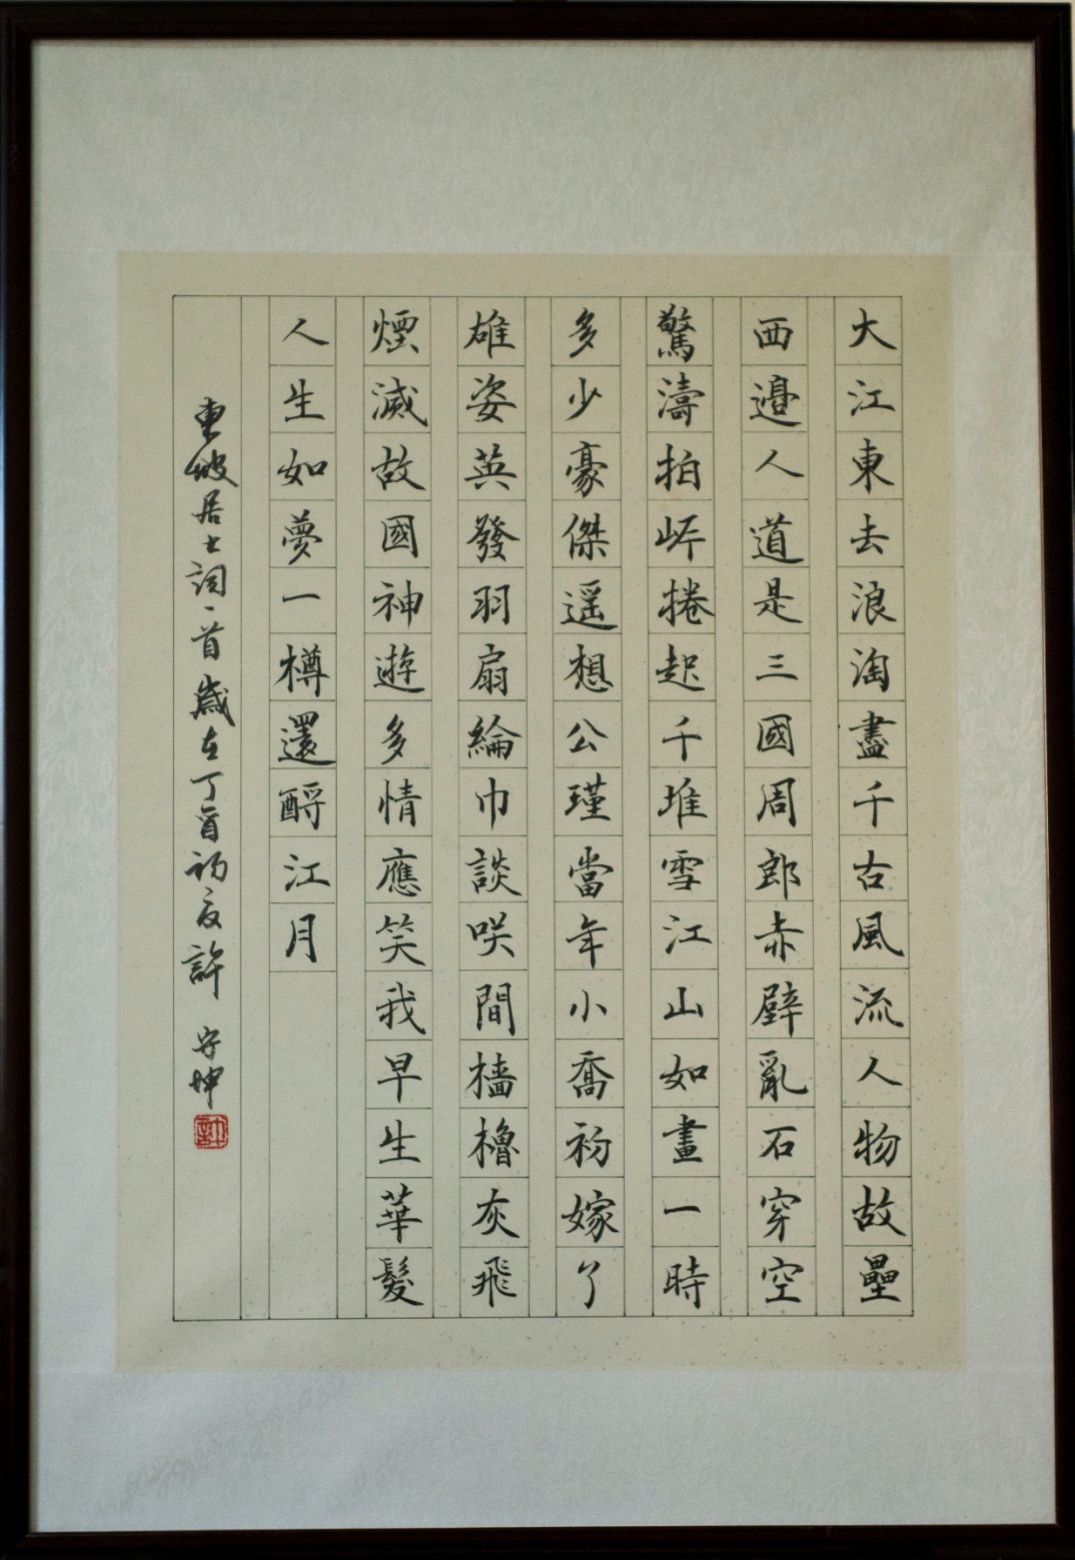 大江東去浪淘盡千古風流人物故壘
西邉人道是三國周郎赤壁亂石穿空
驚濤拍岍捲起千堆雪江山如畫一時
多少豪傑遥想公瑾當年小喬初嫁了
雄姿英發羽扇綸巾談咲間檣櫓灰飛
煙滅故國神遊多情應笑我早生華髮
人生如夢一樽還酹江月
東坡居士詞一首歲在丁酉初夏許守坤